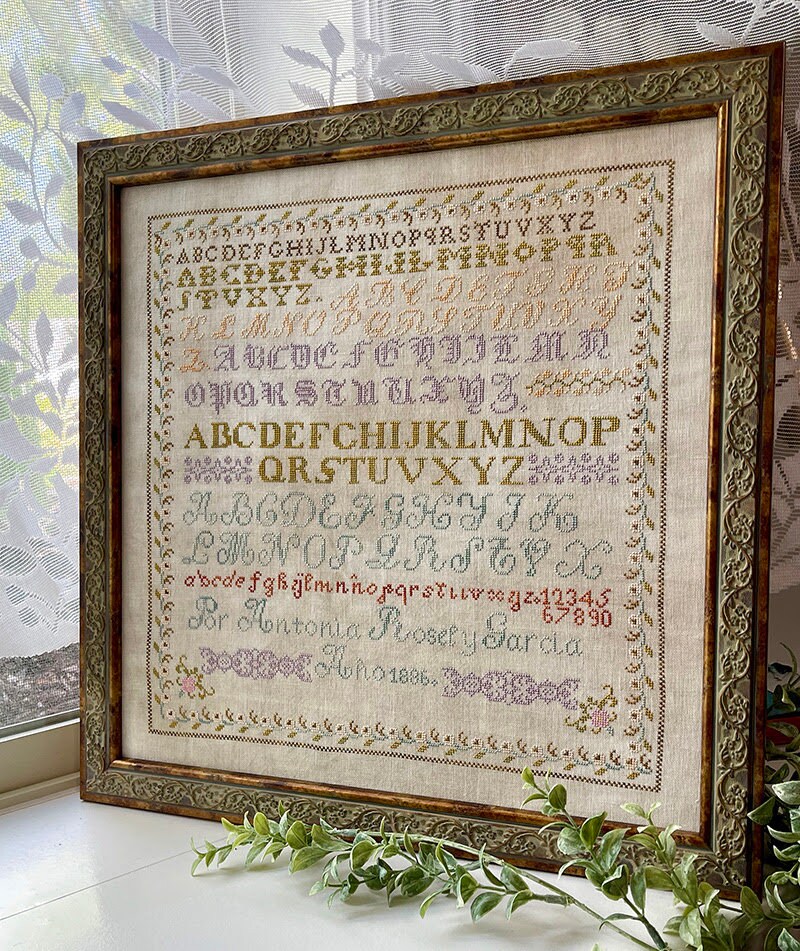 ABCDEFGHIJLMNOPQRSTUVXYZ
ABCDEFGHIJLMNOPQR
STVXYZ. ABCDEFGHIJ
KLMNOPQRSTUVXY
Z. ABCDEFGHIJLMN
OPQRSTUVXYZ.
ABCDEFGHIJKLMNOP
QRSTUVXYZ
ABCDEFGHYJK
LMNOPQRSTVX
abcdefghijlmnñopqrstuvxyz.12345
67890
Por Antonia Rosety Garcia
Año 1886.